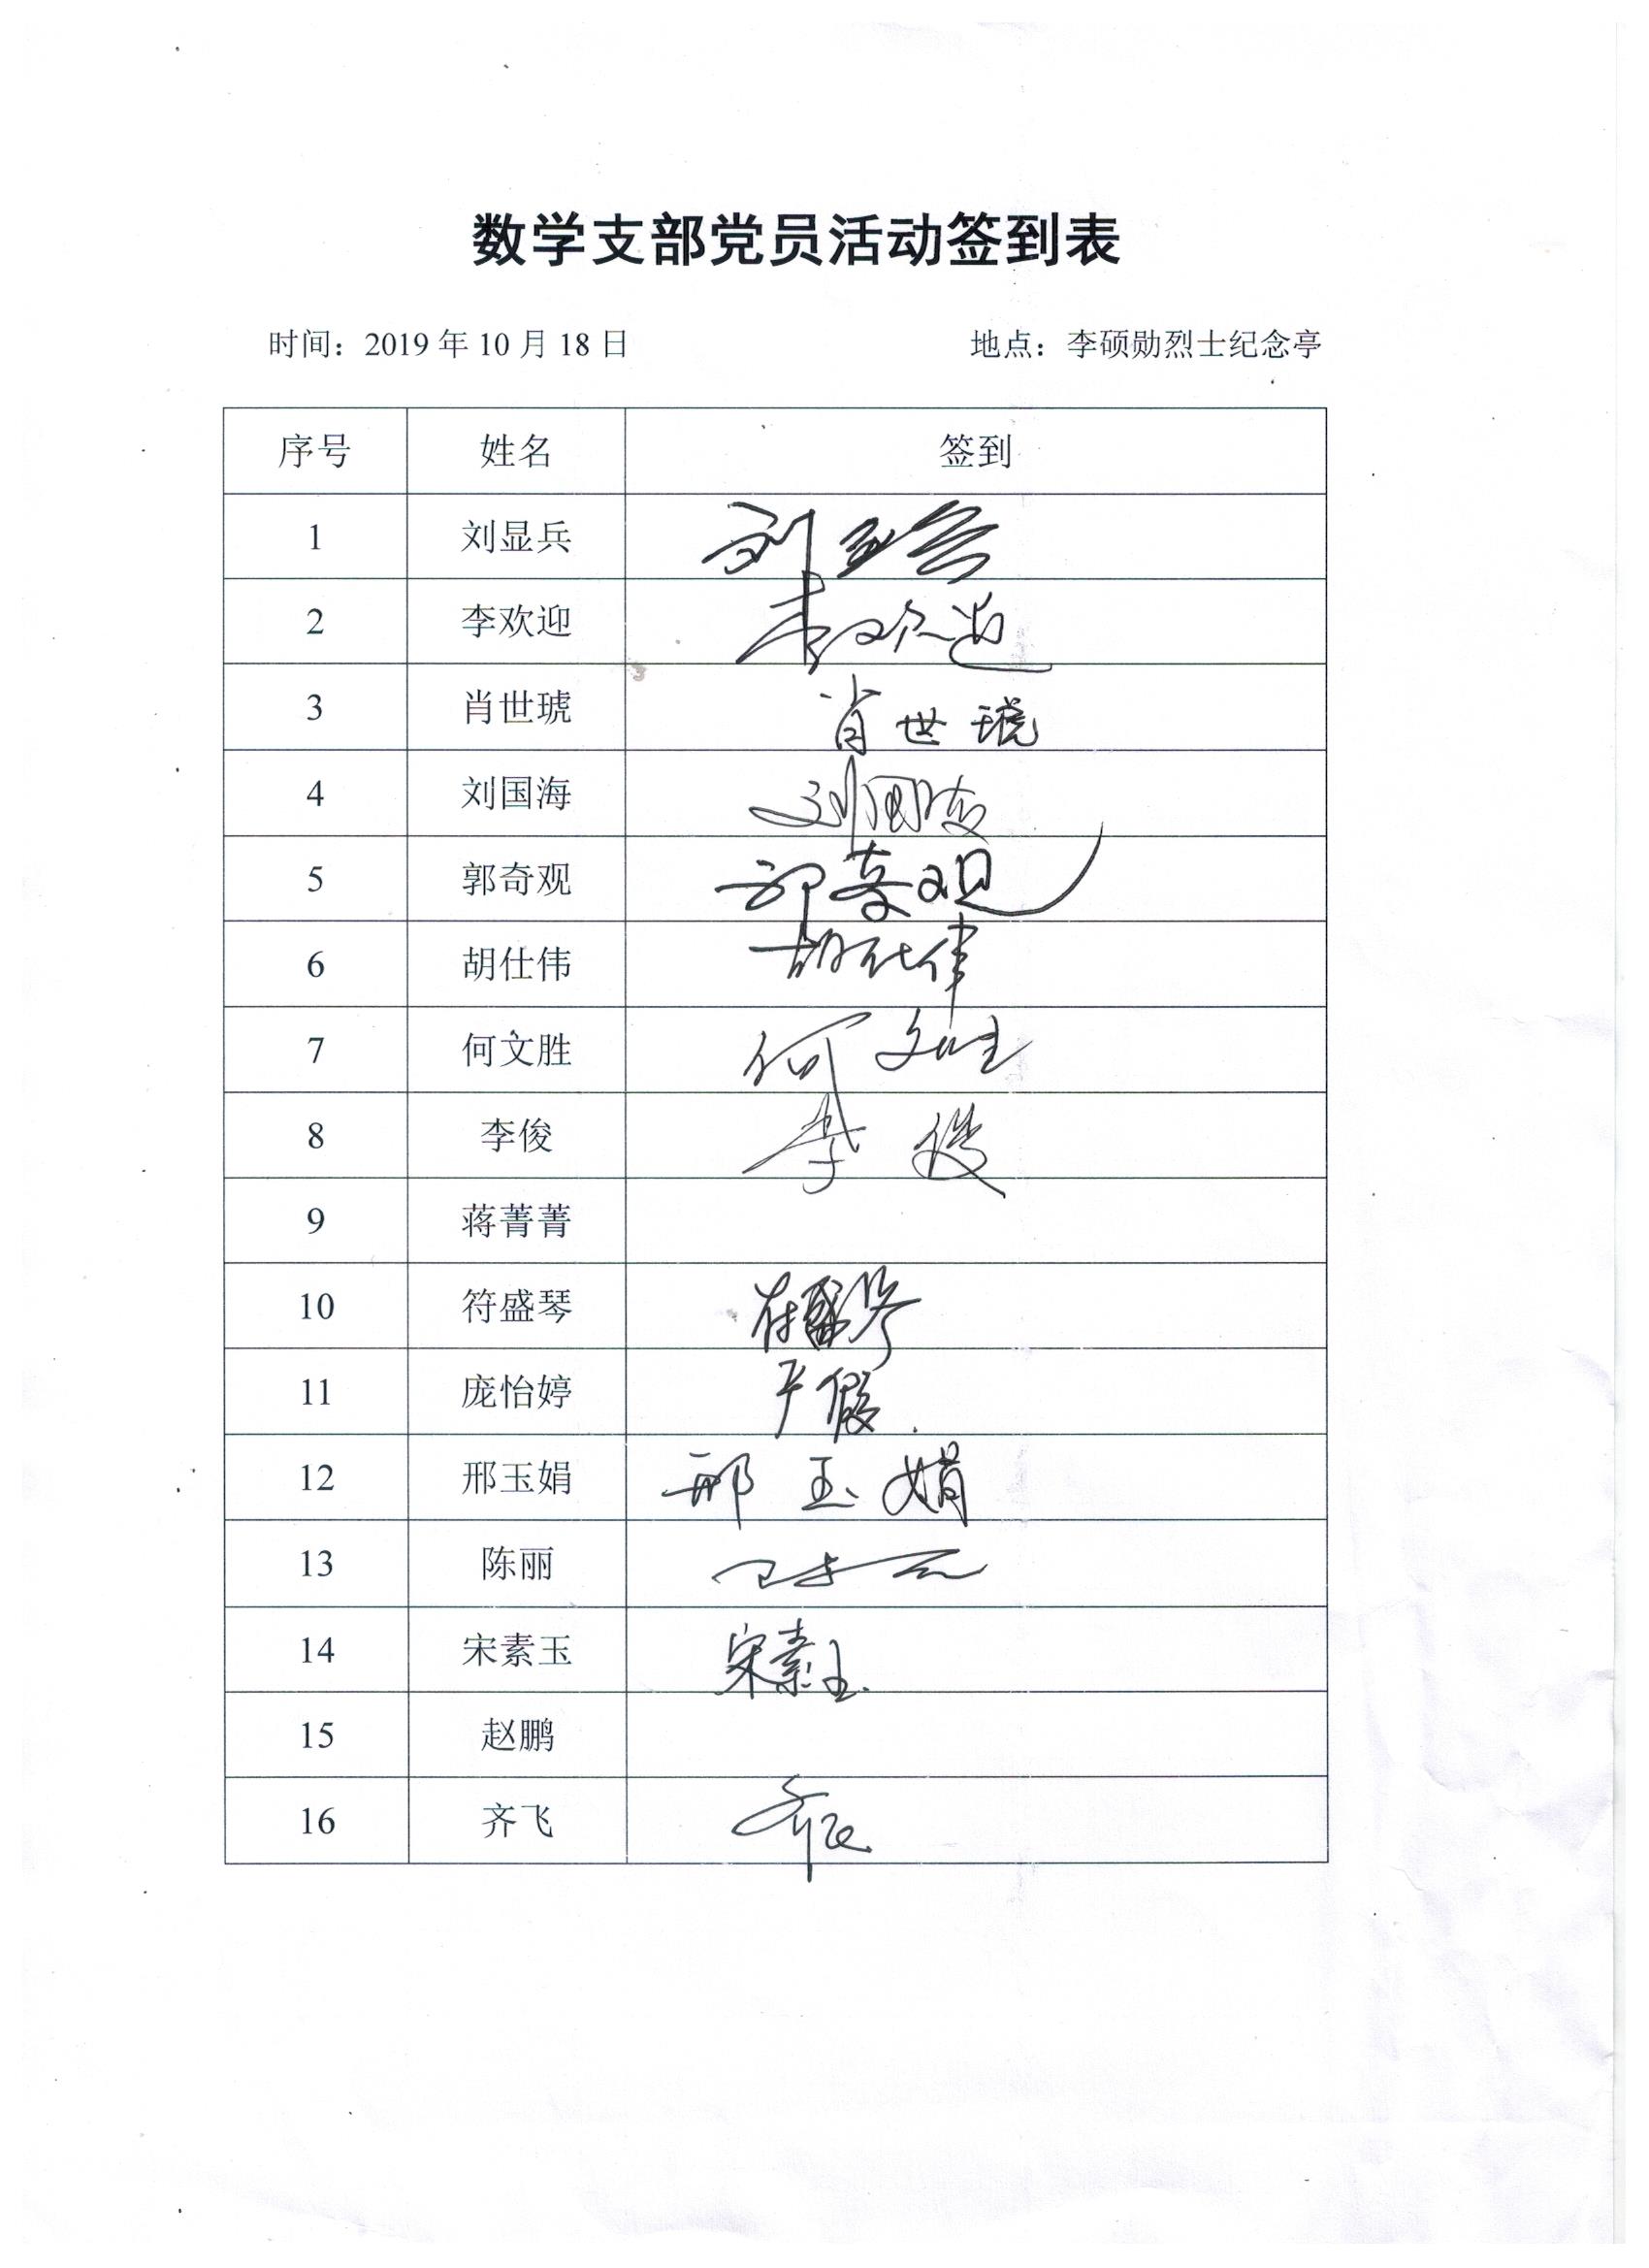 数学支部党员活动签到表
时间：2019年10月18日 地点：李硕勋烈士纪念亭
序号 姓名 签到
1 刘显兵 刘显兵
2 李欢迎 李欢迎
3 肖世琥 肖世琥
4 刘国海 刘国海
5 郭奇观 郭奇观
6 胡仕伟 胡仕伟
7 何文胜 何文胜
8 李俊 李俊
9 蒋菁菁
10 符盛琴 符盛琴
11 庞怡婷 产假.
12 邢玉娟 邢玉娟
13 陈丽 陈丽
14 宋素玉 宋素玉
15 赵鹏
16 齐飞 齐飞